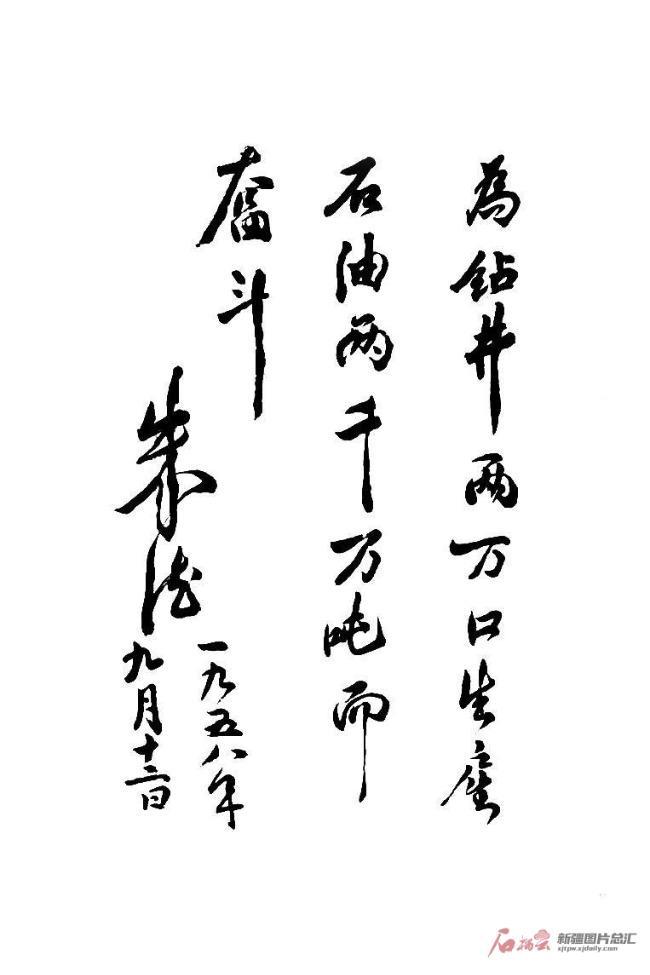 為钻井两万口生產
石油两千万吨而
奋斗
朱德
一九五八年
九月十二日
石榴云
新疆图片总汇
xjtpw.xjdaily.com